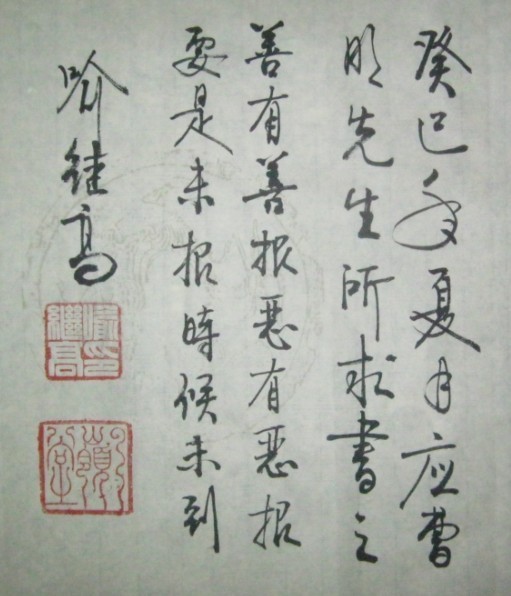 癸巳年夏月应曹
明先生所求書之
善有善报恶有恶报
要是未报時候未到
喻继高
喻印
繼高